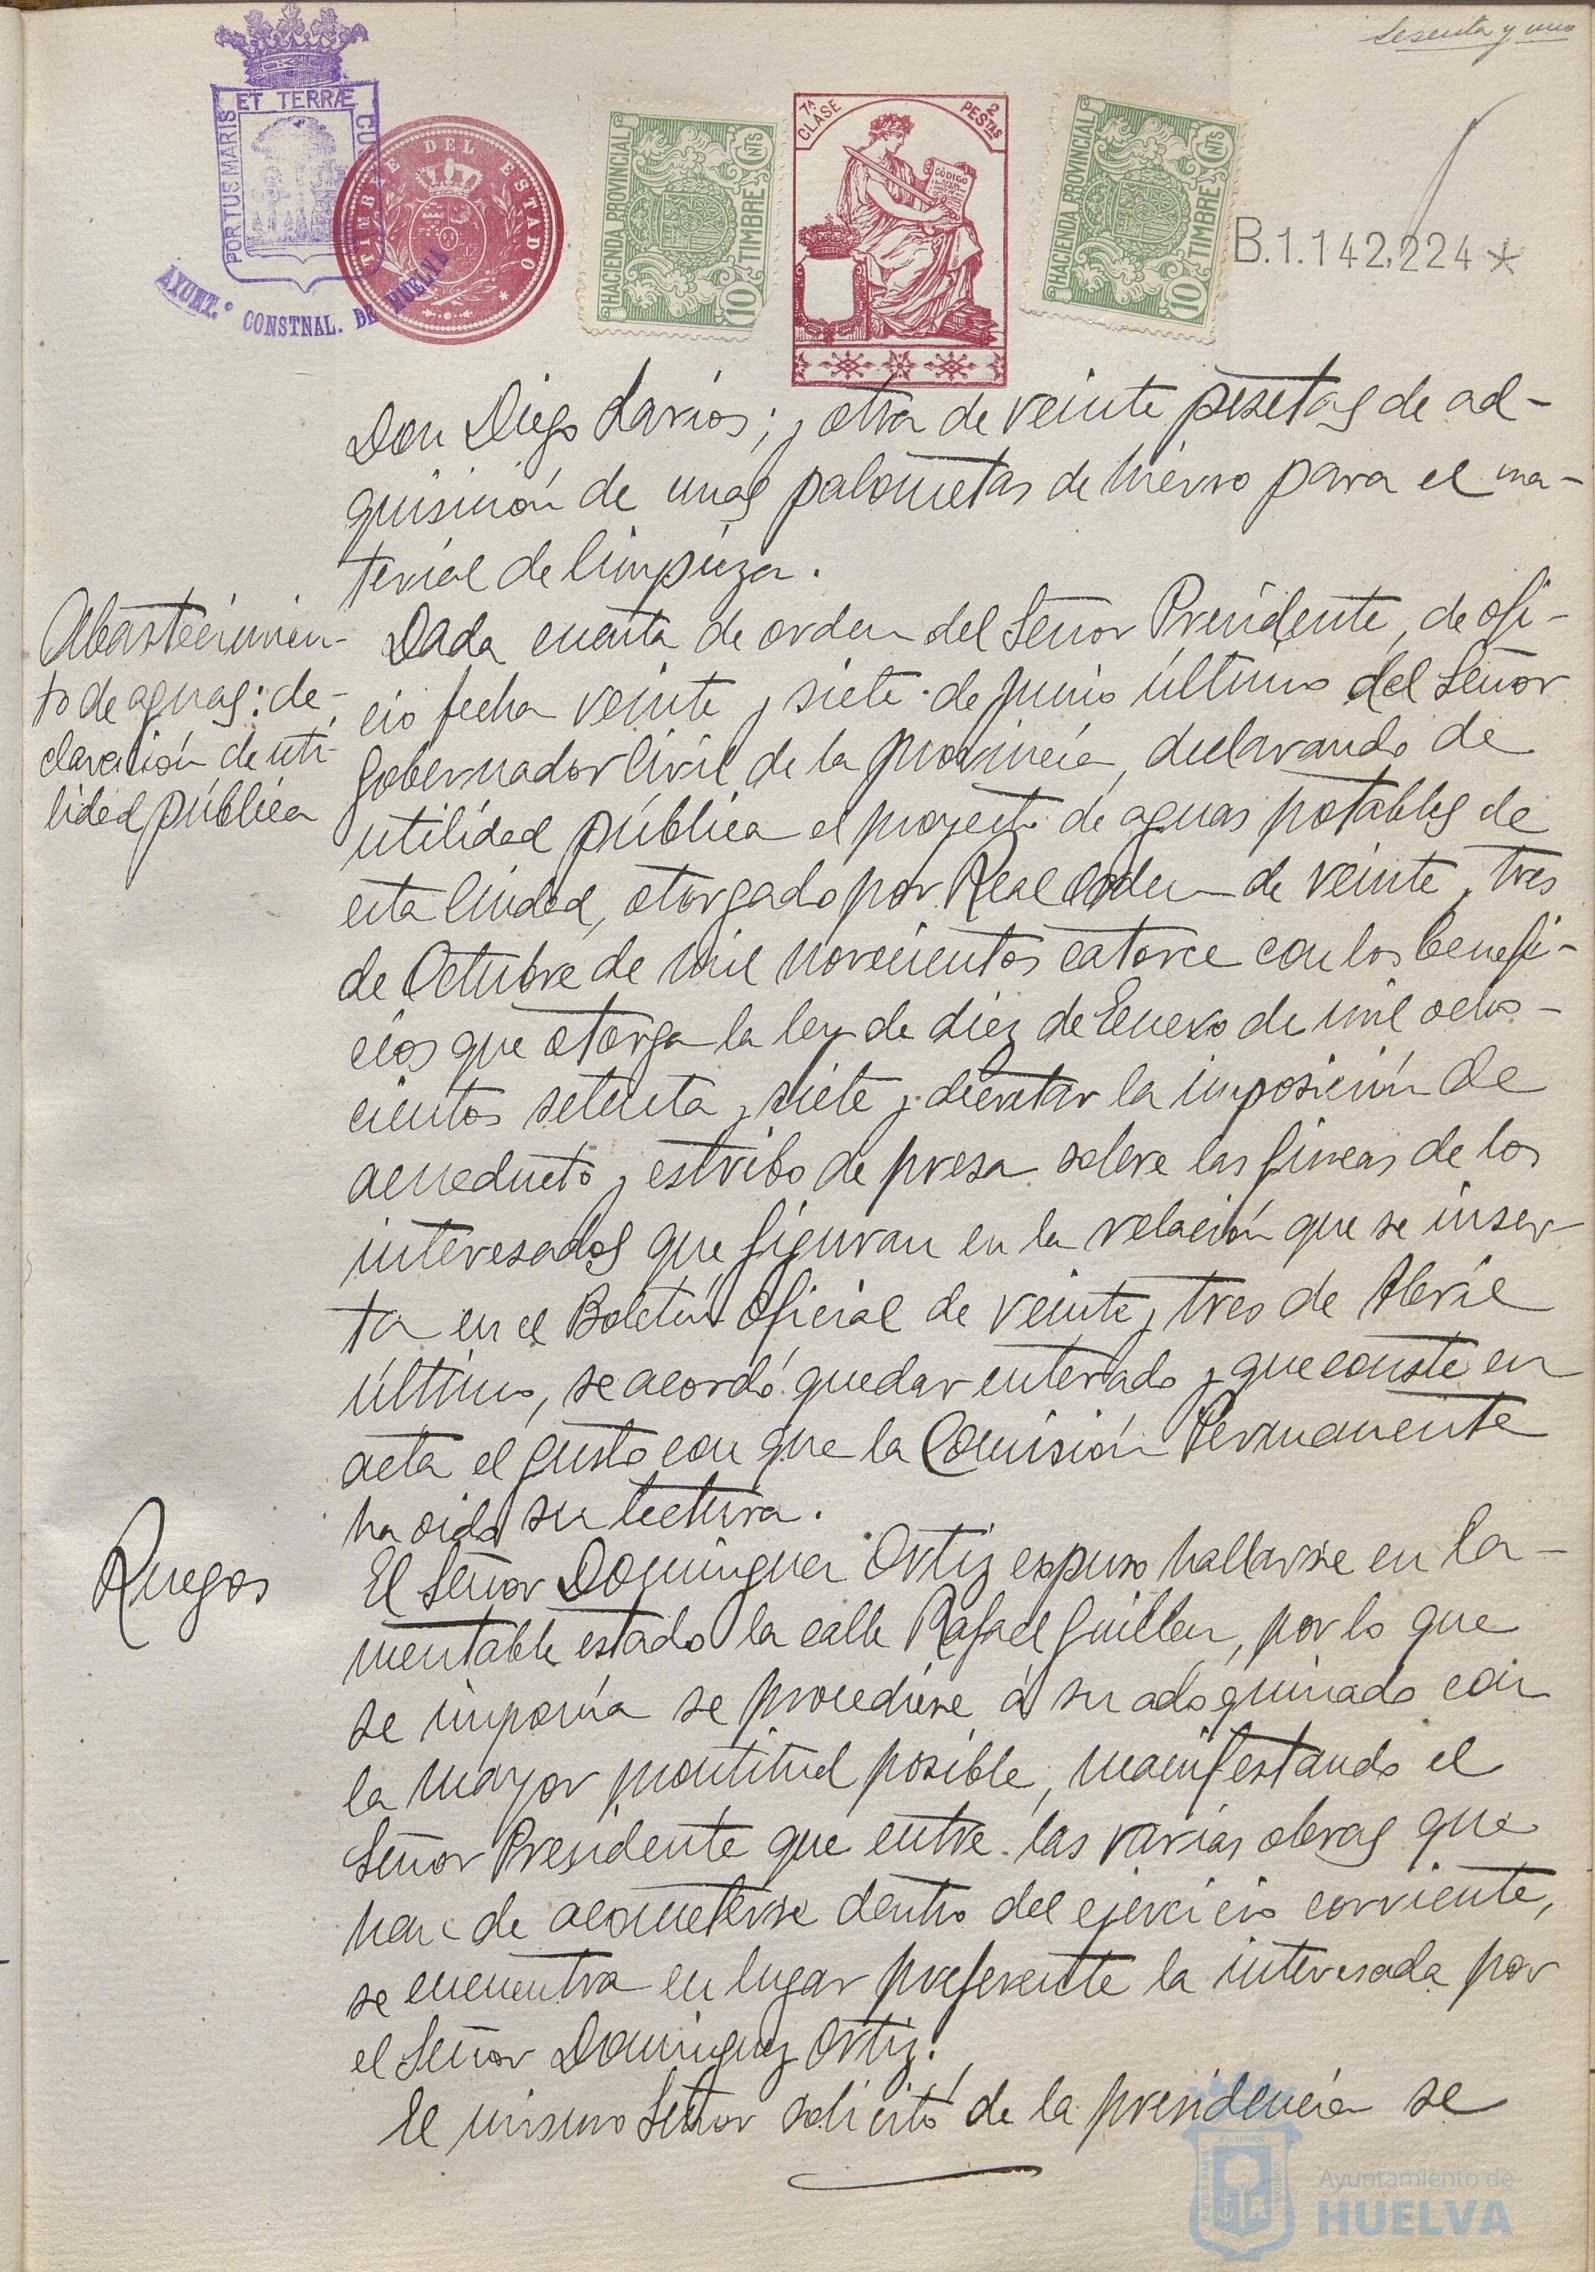 Sesenta y uno
PORTUS MARIS ET TERRÆ CU
AYUNT.º CONSTNAL. DE HUELVA
TIMBRE DEL ESTADO
HACIENDA PROVINCIAL
10 CNTS TIMBRE
7ª CLASE 2 PESTAS
CÓDIGO
HACIENDA PROVINCIAL
10 CNTS TIMBRE
B.1.142,224*
Don Diego Larios; y otra de veinte pesetas de ad-
quisición de unas palometas de hierro para el ma-
terial de limpieza.
Abastecimien-
to de aguas: de-
claración de uti-
lidad pública
Dada cuenta de orden del Señor Presidente, de ofi-
cio fecha veinte y siete de junio último del Señor
Gobernador Civil de la provincia, declarando de
utilidad pública el proyecto de aguas potables de
esta Ciudad, otorgado por Real Orden de veinte y tres
de Octubre de mil novecientos catorce con los benefi-
cios que otorga la ley de diez de Enero de mil ocho-
cientos setenta y siete y decretar la imposición de
acueducto y estribo de presa sobre las fincas de los
interesados que figuran en la relación que se inser-
ta en el Boletín Oficial de veinte y tres de Abril
último, se acordó quedar enterado y que conste en
acta el gusto con que la Comisión Permanente
ha oido su lectura.
Ruegos
El Señor Dominguez Ortiz expuso hallarse en la-
mentable estado la calle Rafael Guillen, por lo que
se imponía se procediese á su adoquinado con
la mayor prontitud posible, manifestando el
Señor Presidente que entre las varias obras que
han de acometerse dentro del ejercicio corriente,
se encuentra en lugar preferente la interesada por
el Señor Dominguez Ortiz.
El mismo Señor solicitó de la presidencia se
Ayuntamiento de
HUELVA